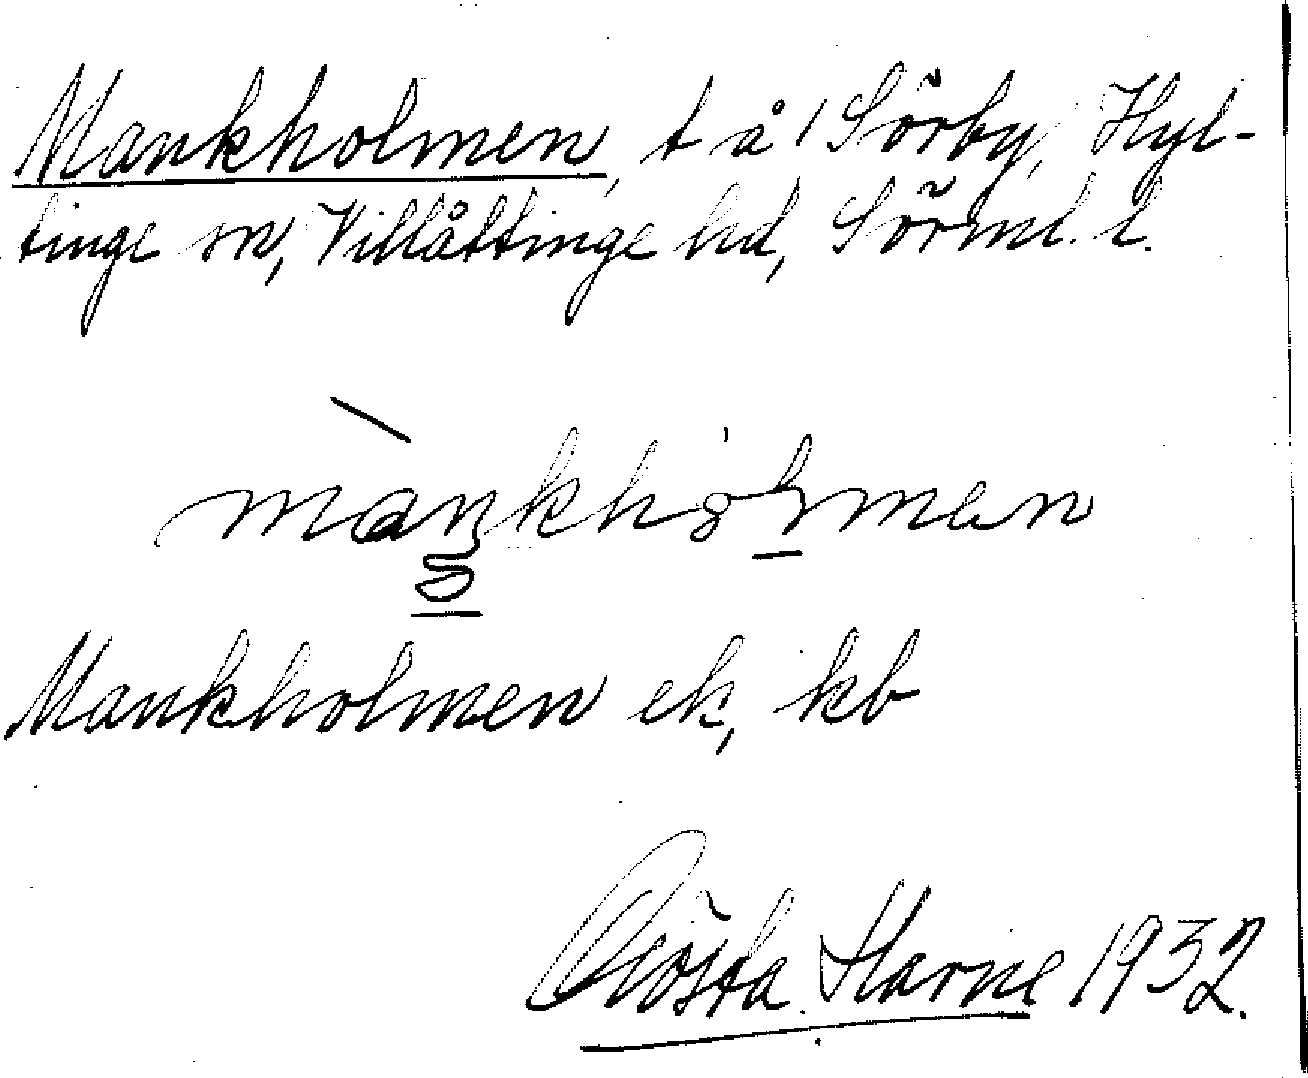 Mankholmen, t å Sörby, Hyl-
tinge sn, Villåttinge hd, Sörml. l.
Mankholmen ek, kb
Gösta Harne 1932.